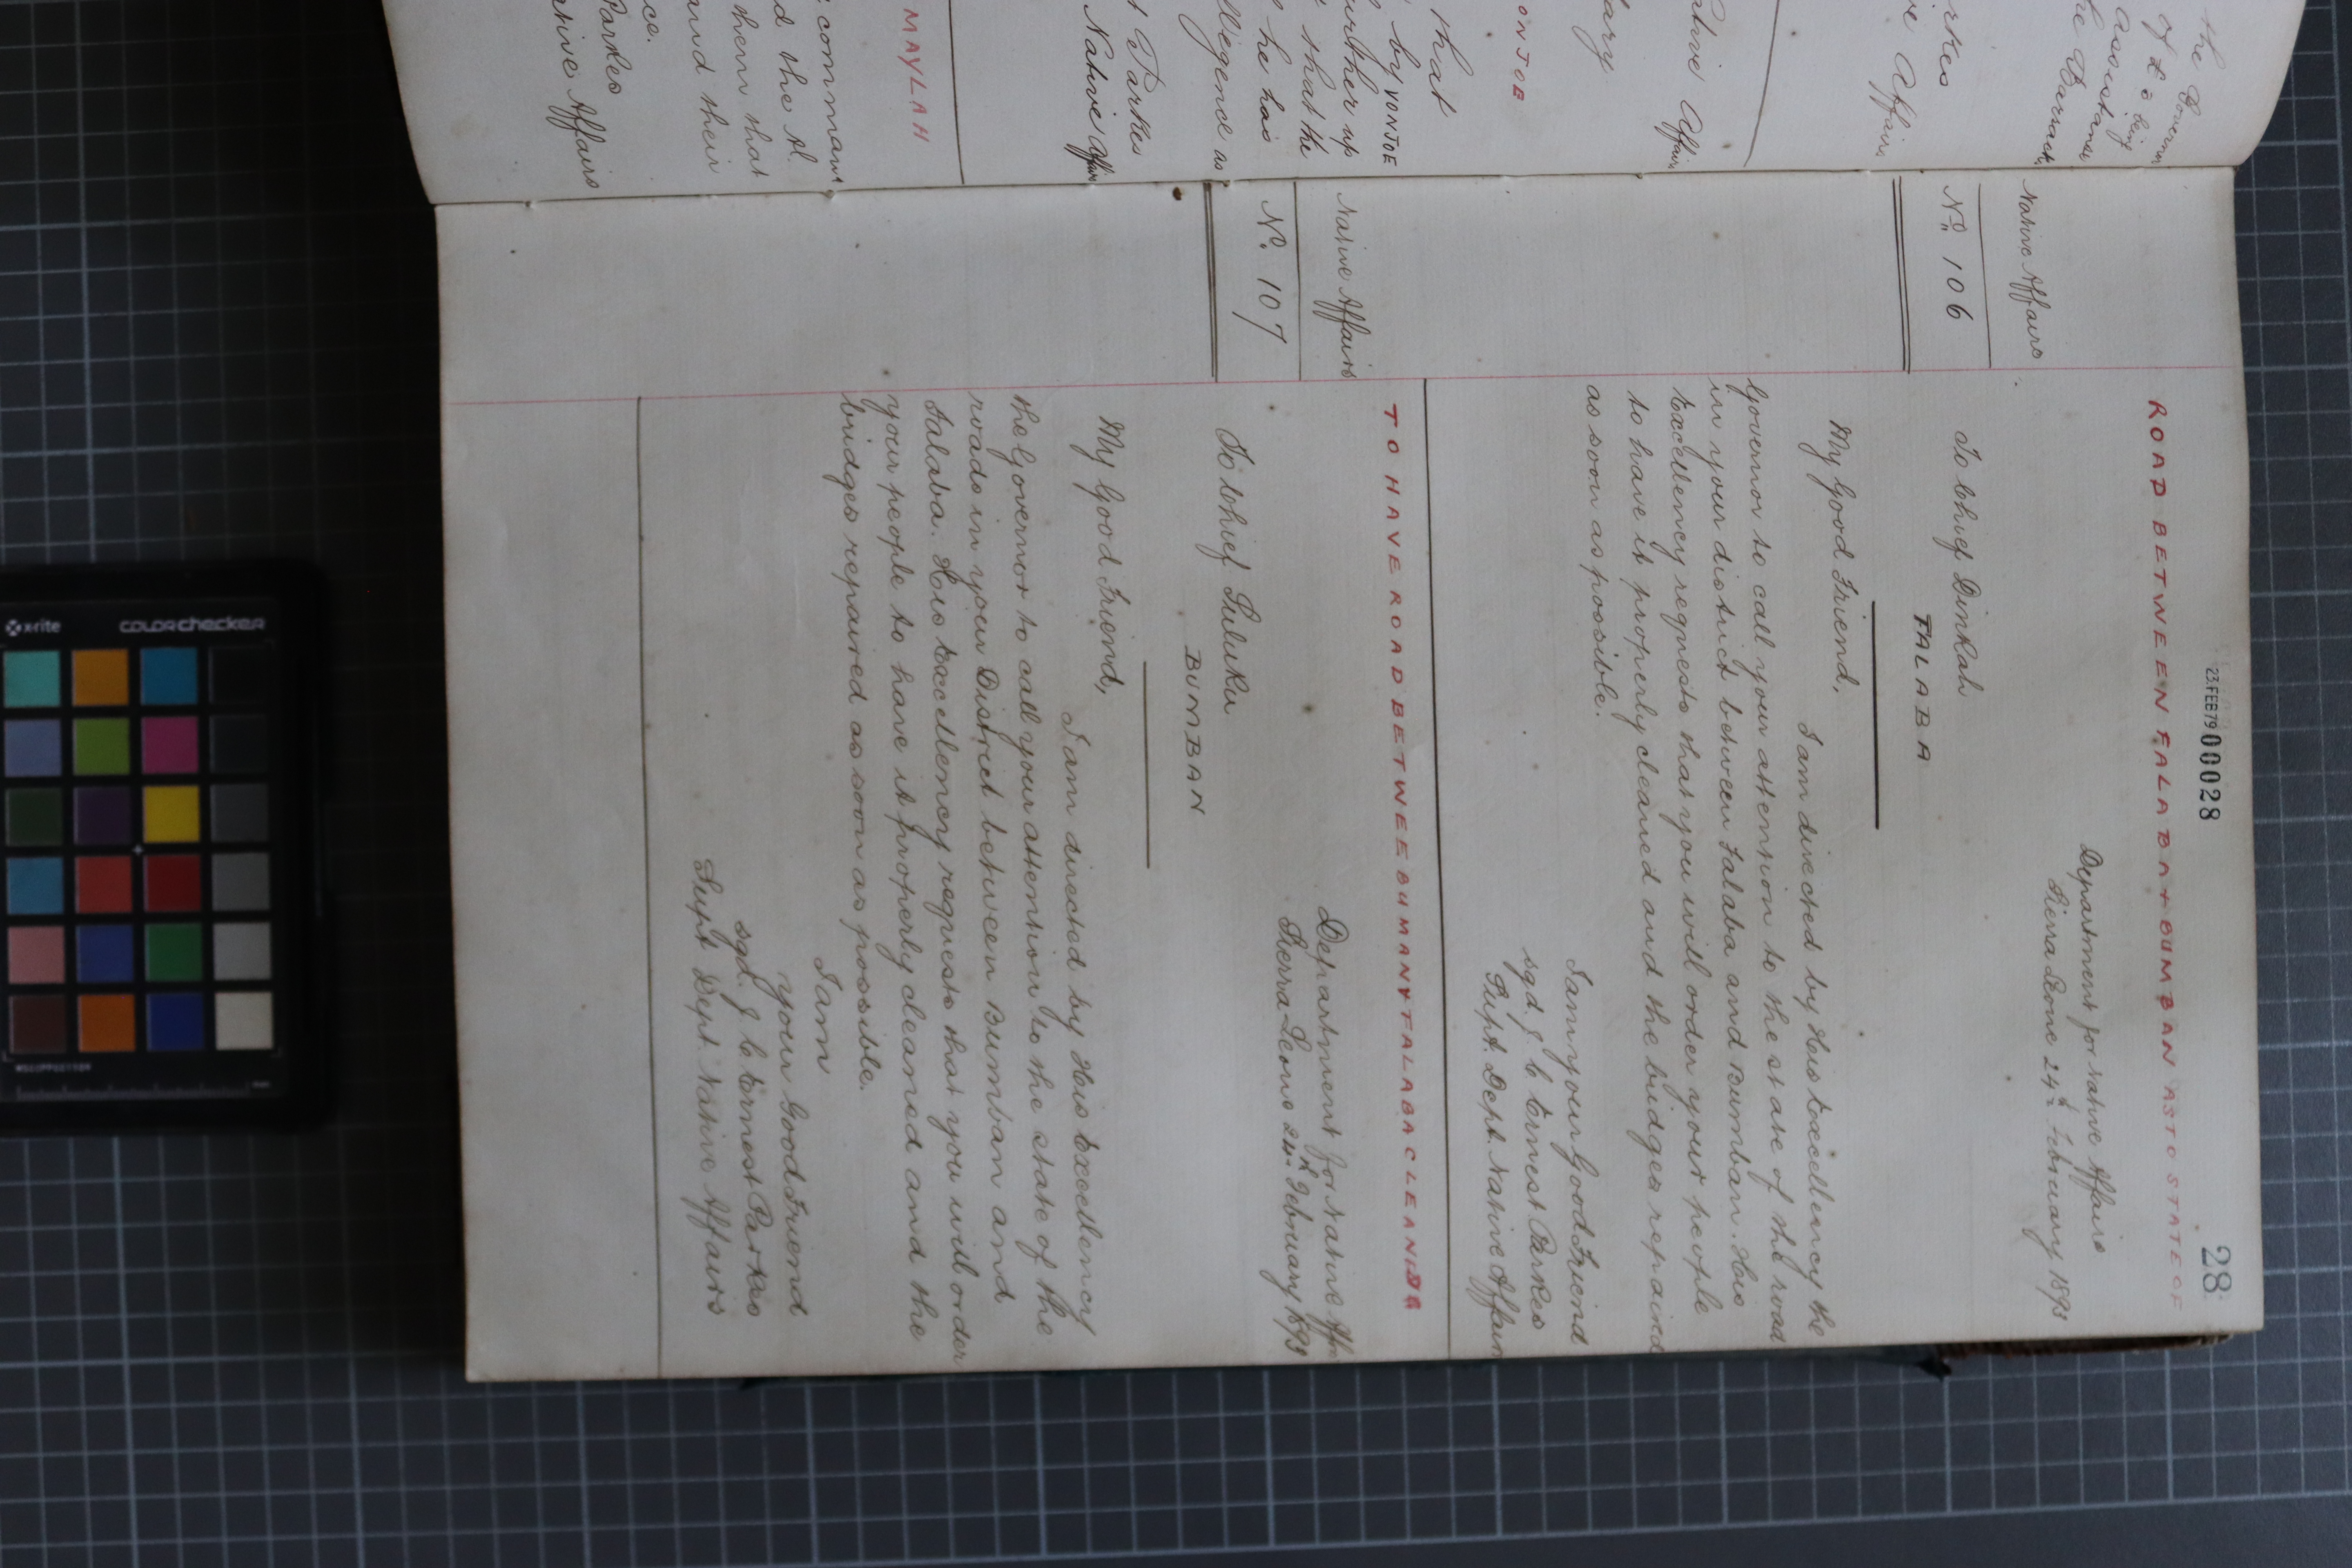 23.FEB79 00028
28
ROAD BETWEEN FALABA + BUMBAN AS TO STATE OF
Department for Native Affairs
Sierra Leone 24th February 1893
Native Affairs
No. 106
To Chief Dinkah
FALABA
My Good Friend,
I am directed by His Excellency the
Governor to call your attention to the state of the road
in your district between Falaba and Bumban. His
Excellency requests that you will order your people
to have it properly cleaned and the bridges repaired
as soon as possible.
I am your Good Friend
sgd. J. C. Ernest Parkes
Supt. Dept. Native Affairs
TO HAVE ROAD BETWEE BUMAN Y FALABA CLEANING
Department for Native Aff
Sierra Leone 24th February 1893
Native Affairs
No. 107
To Chief Suluku
BUMBAN
My Good Friend,
I am directed by His Excellency
the Governor to call your attention to the state of the
roads in your District between Bumban and
Falaba. His Excellency requests that you will order
your people to have it properly cleaned and the
bridges repaired as soon as possible.
I am
your Good Friend
sgd. J. C. Ernest Parkes
Supt. Dept. Native Affairs
the Governor
of £5 being
assistance
the Barrack
rkes
ve Affairs
ative Affairs
tary
ONJOE
that
by YONJOE
further up
that he
he has
llegence as
t Parkes
Native Affairs
MAYLAH
command
d the
them that
and their
ce.
Parkes
ative Affairs
x-rite
colorchecker